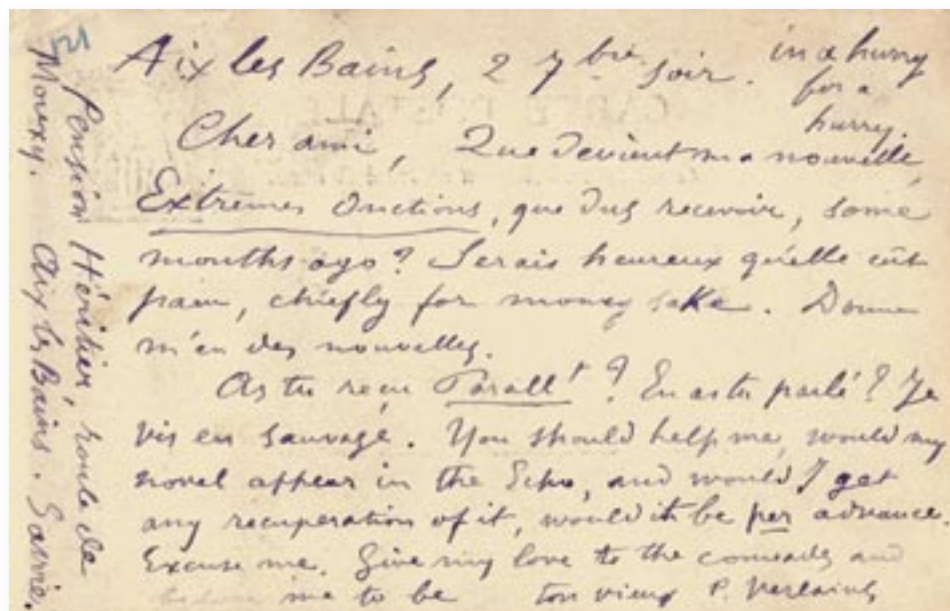 Aix les Bains, 2 7bre soir. in a hurry
for a
hurry.
Cher ami, Que devient ma nouvelle,
Extrêmes Onctions, que dus recevoir, some
months ago? Serais heureux qu'elle eût
paru, chiefly for money sake. Donne
m'en des nouvelles.
As tu reçu Parallt? En as tu parlé? Je
vis en sauvage. You should help me, would my
novel appear in the Echo, and would I get
any recuperation of it, would it be per advance
Excuse me. Give my love to the comrades and
me to be ton vieux P. Verlaine
Pension Héritier, route de
Mouxy. Aix les Bains. Savoie.